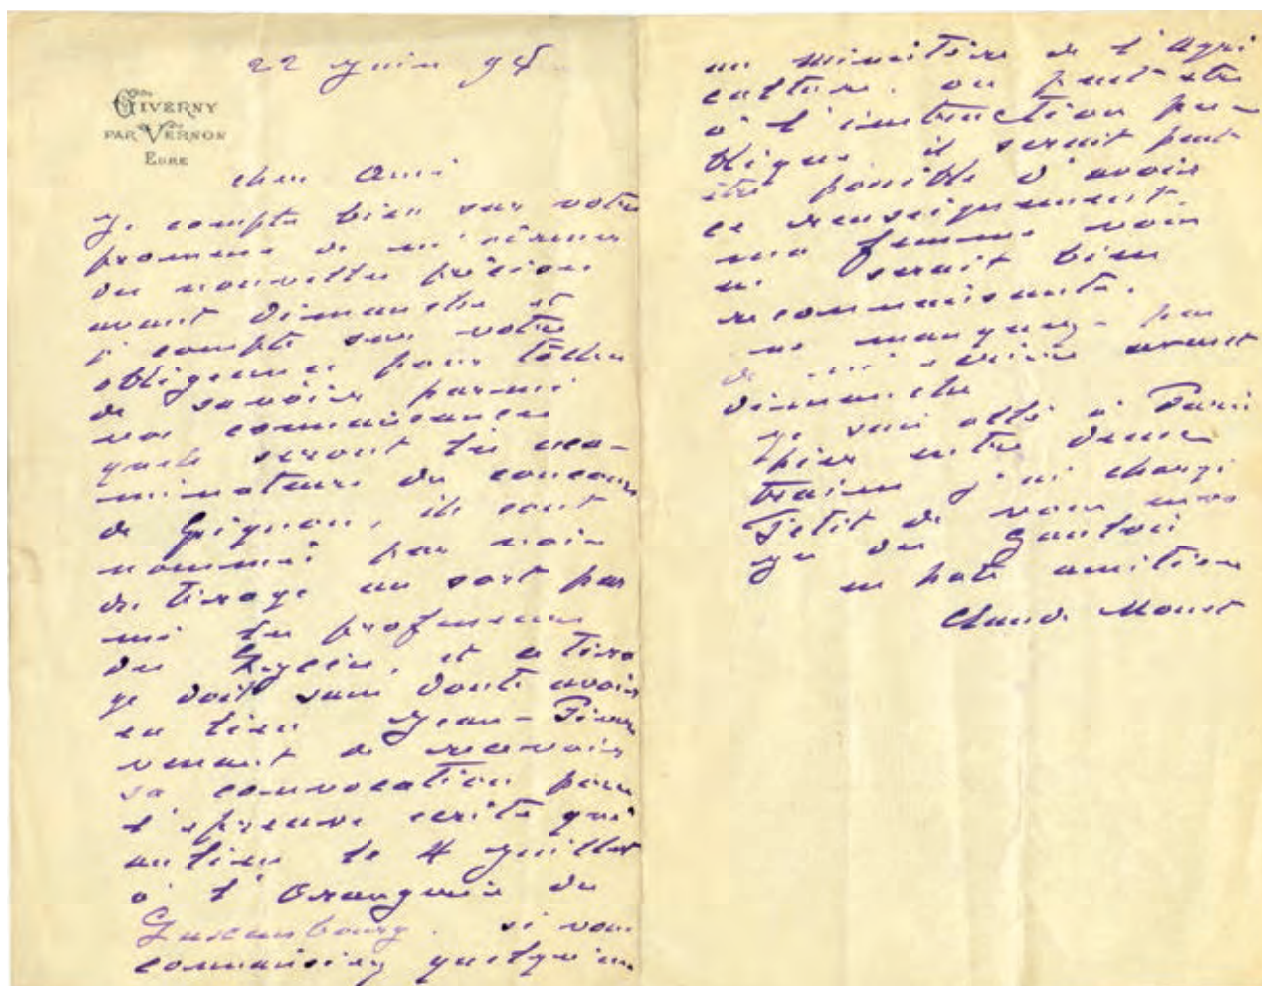 22 Juin 98
GIVERNY
PAR VERNON
EURE
cher Ami
Je compte bien sur votre
promesse de m'écrire
des nouvelles précises
avant dimanche et
je compte sur votre
obligeance pour tâcher
de savoir parmi
vos connaissances
quels seront les exa-
minateurs du concours
de Grignon, ils sont
nommés par voie
de tirage au sort par
mi les professeurs
des Lycées, et ce tira
ge doit sans doute avoir
eu lieu Jean-Pierre
venant de recevoir
sa convocation pour
l'épreuve écrite qui
au lieu le 4 Juillet
à l'Orangerie du
Luxembourg. si vous
connaissiez quelqu'un
au ministère de l'Agri
culture. ou peut-être
à l'instruction pu-
blique. il serait peut-
être possible d'avoir
ce renseignement.
ma femme vous
en serait bien
reconnaissante.
ne manquez-pas
de m'écrire avant
dimanche
je suis allé à Paris
hier entre deux
trains j'ai chargé
Petit de vous envo
yer des
en hate amitiés
Claude Monet